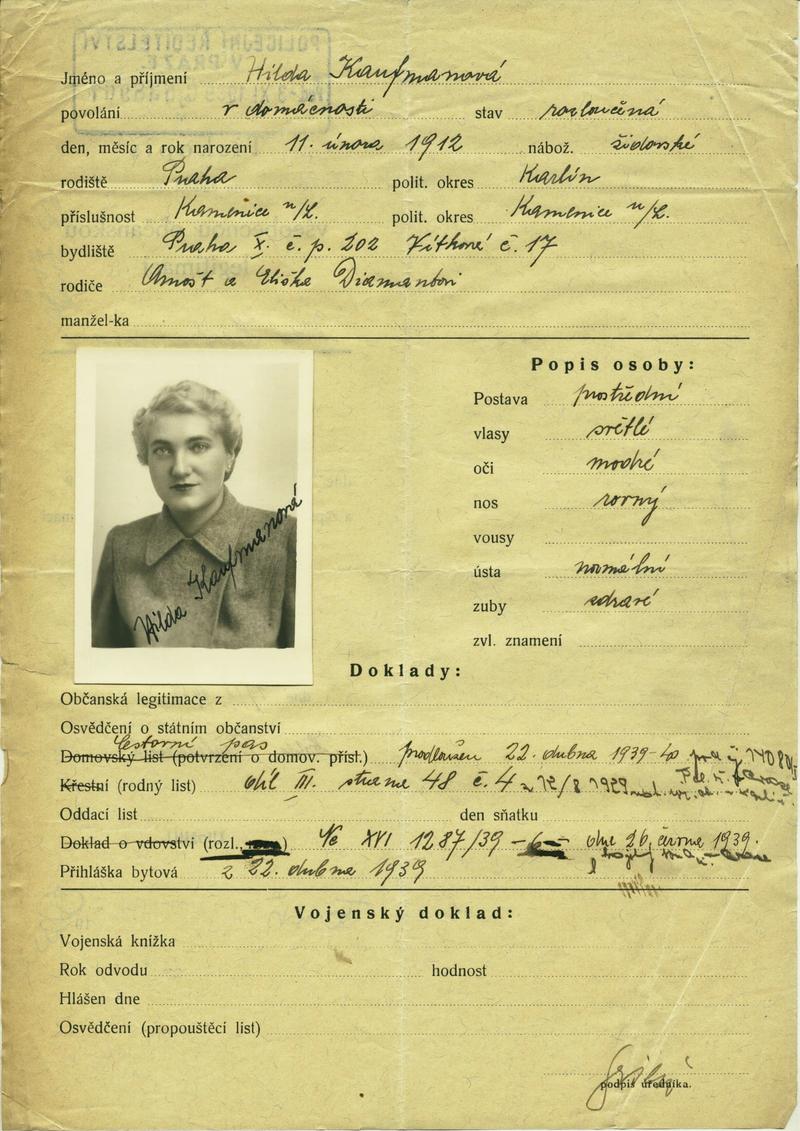 POLICEJNÍ ŘEDITELSTVÍ
V PRAZE
Jméno a příjmení Hilda Kaufmanová
povolání v domácnosti stav rozloučená
den, měsíc a rok narození 11. února 1912 nábož. židovské
rodiště Praha polit. okres Karlín
příslušnost Kamenice n/L. polit. okres Kamenice n/L.
bydliště Praha X. č. p. 202 Vítkova č. 17
rodiče Arnošt a Eliška Diamantovi
manžel-ka
Popis osoby:
Postava prostřední
vlasy světlé
oči modré
nos rovný
vousy
ústa normální
zuby zdravé
zvl. znamení
Hilda Kaufmanová
Doklady:
Občanská legitimace z
Osvědčení o státním občanství
Cestovní pas
Domovský list (potvrzení o domov. přísl.) prodloužen 22. dubna 1939
Křestní (rodný list) díl III. strana 48 č. 4
Oddací list den sňatku
Doklad o vdovství (rozl. Nc XVI 1287/39 dne 26. června 1939.
Přihláška bytová z 22. dubna 1939
Vojenský doklad:
Vojenská knížka
Rok odvodu hodnost
Hlášen dne
Osvědčení (propouštěcí list)
podpis úředníka.